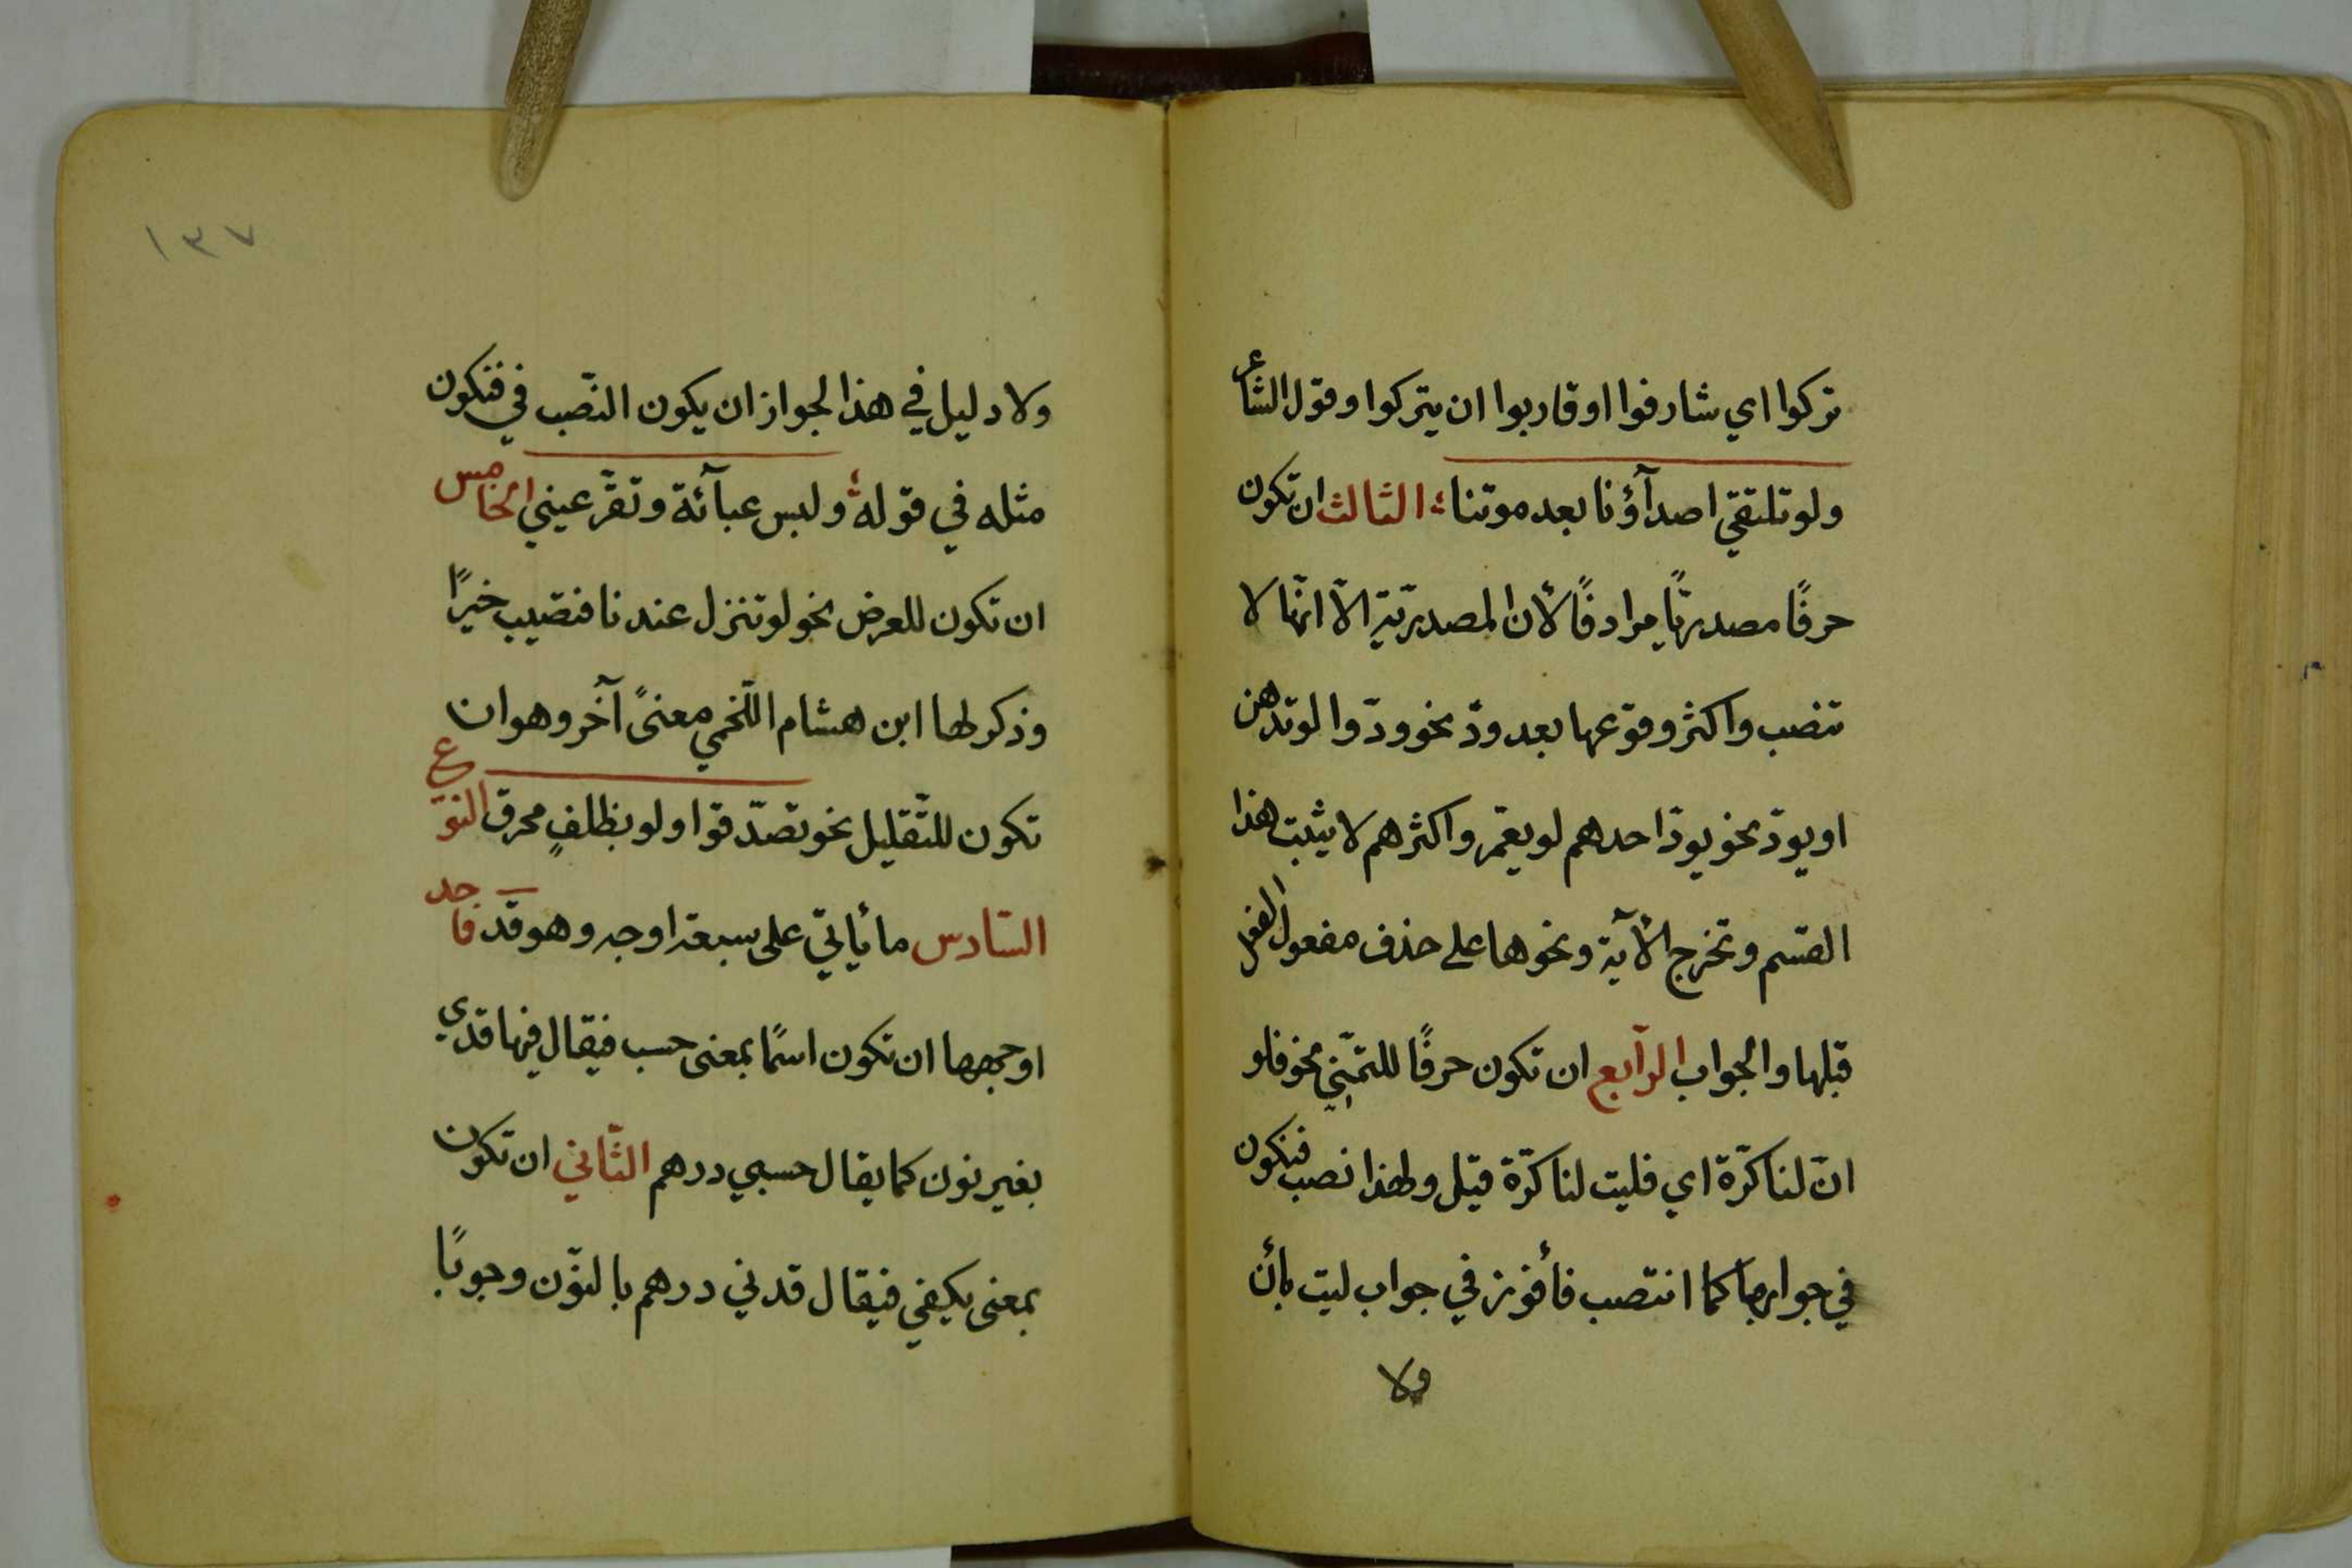 تركوا اي شارفوا او قاربوا ان يتركوا وقول الشاعر
ولو تلتقي اصدآؤنا بعد موتنا ؛ الثالث ان تكون
حرفًا مصدريًّا مرادفًا لأن المصدريّة الاّ انّها لا
تنصب واكثر وقوعها بعد ودّ نحو ودّوا لو تدهن
او يودّ نحو يودّ احدهم لو يعمّر واكثرهم لا يثبت هذا
القسم وتخرج الآية ونحوها على حذف مفعول الفعل
قبلها والجواب الرّابع ان تكون حرفًا للتمنّي نحو فلو
انّ لنا كرّة اي فليت لنا كرّة قيل ولهذا نصب فنكون
في جوابها كما انتصب فأفوز في جواب ليت بأن
ولا
١٣٧
ولا دليل في هذا لجواز ان يكون النّصب في فنكون
مثله في قوله ؛ ولبس عبآئة وتقرّ عيني الخامس
ان تكون للعرض نحو لو تنزل عندنا فتصيب خيرًا
وذكر لها ابن هشام اللّخمي معنىً آخر وهو ان
تكون للتّقليل نحو تصدّقوا ولو بظلفٍ محرق النّوع
السّادس ما يأتي على سبعة اوجه وهو قد فاحد
اوجهها ان تكون اسمًا بمعنى حسب فيقال فيها قدي
بغير نون كما يقال حسبي درهم الثّاني ان تكون
بمعنى يكفي فيقال قدني درهم بالنّون وجوبًا